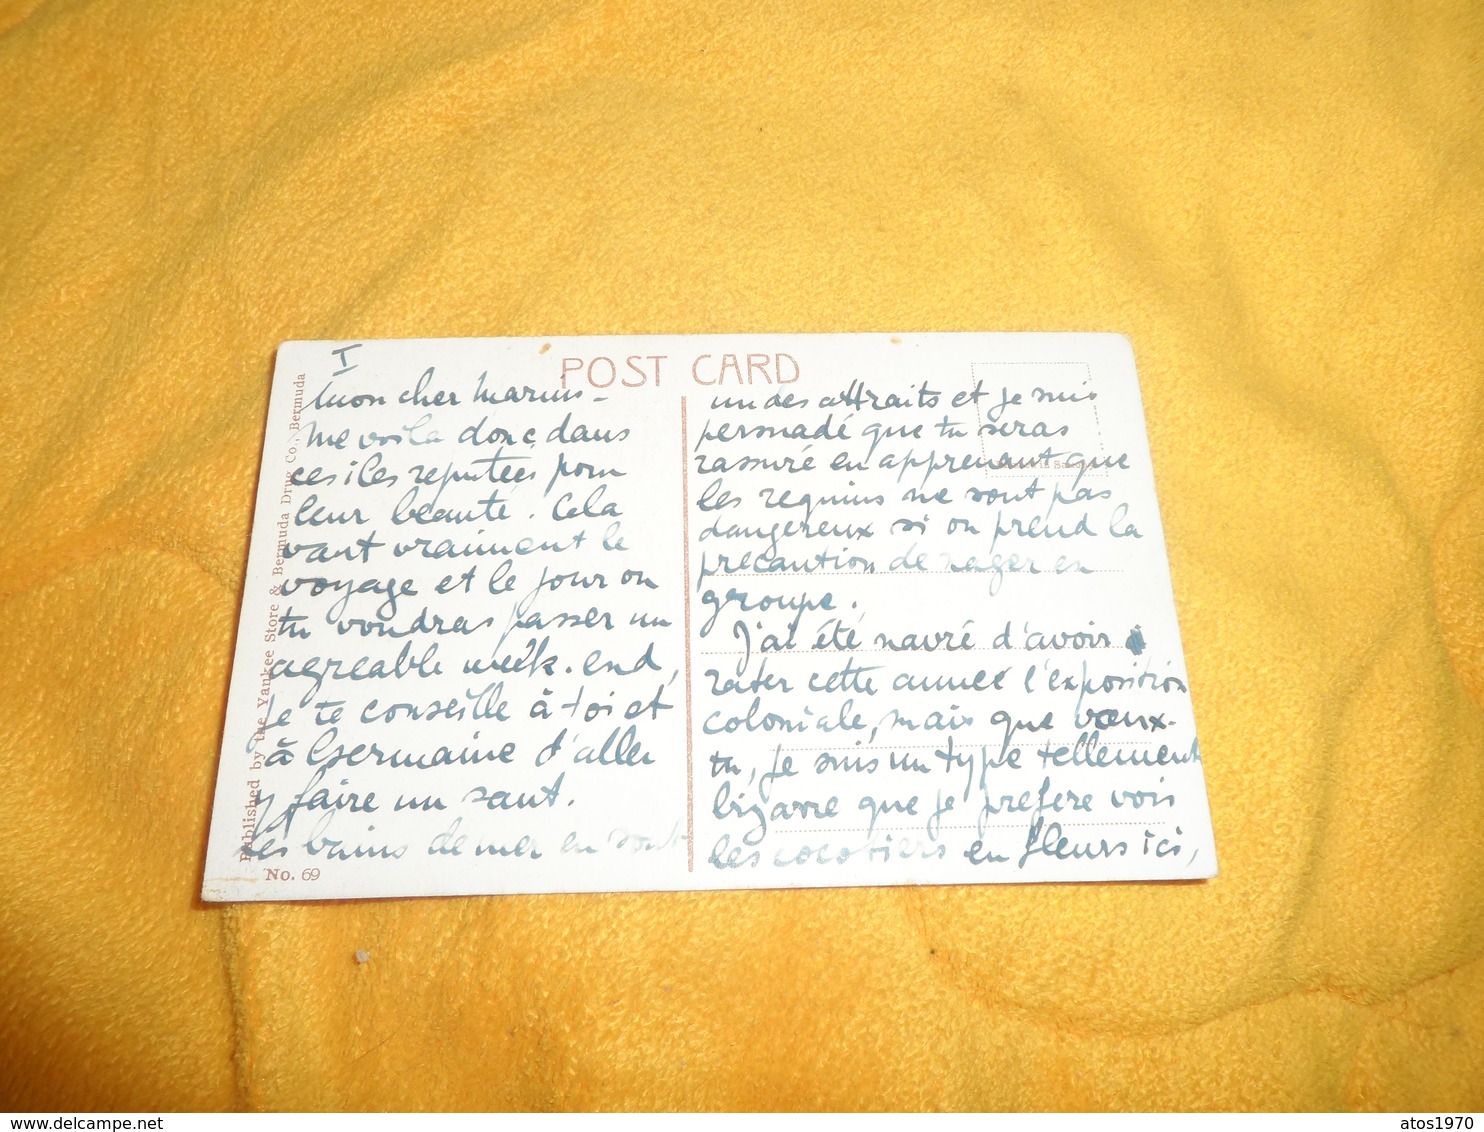 POST CARD
I
Mon cher Marius -
Me voila donc dans
ces iles reputées pour
leur beauté. Cela
vaut vraiment le
voyage et le jour ou
tu voudras passer un
agreable week. end,
je te conseille à toi et
à Germaine d'aller
y faire un saut.
Les bains de mer en sont
un des attraits et je suis
persuadé que tu seras
rassuré en apprenant que
les requins ne sont pas
dangereux si on prend la
précaution de nager en
groupe.
J'ai été navré d'avoir
rater cette année l'exposition
coloniale, mais que veux-
tu, je suis un type tellement
bizarre que je préfère voir
les cocotiers en fleurs ici,
Published by the Yankee Store & Bermuda Drug Co., Bermuda
No. 69
atos1970
delcampe.net